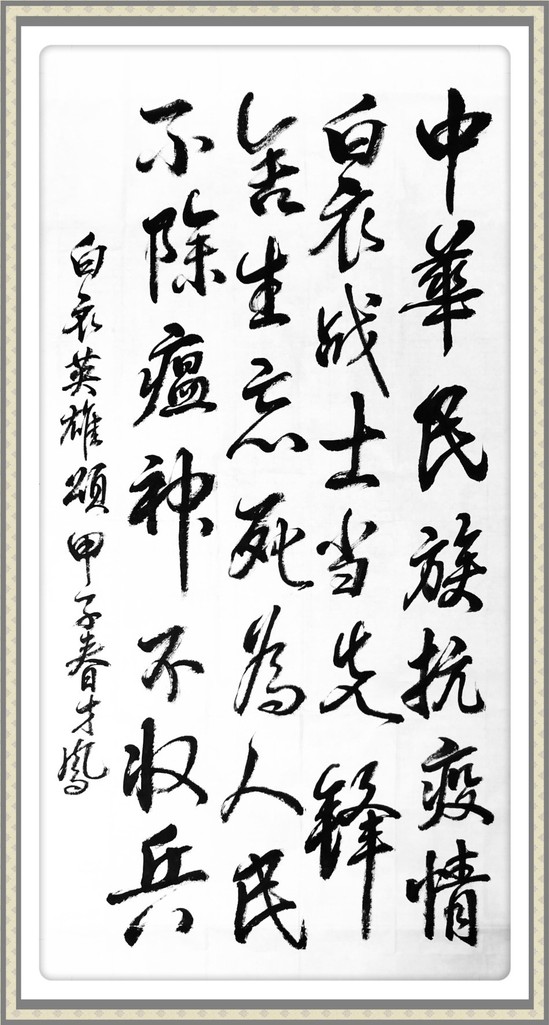 中華民族抗疫情
白衣战士当先锋
舍生忘死為人民
不除瘟神不收兵
白衣英雄頌甲子春才鳳